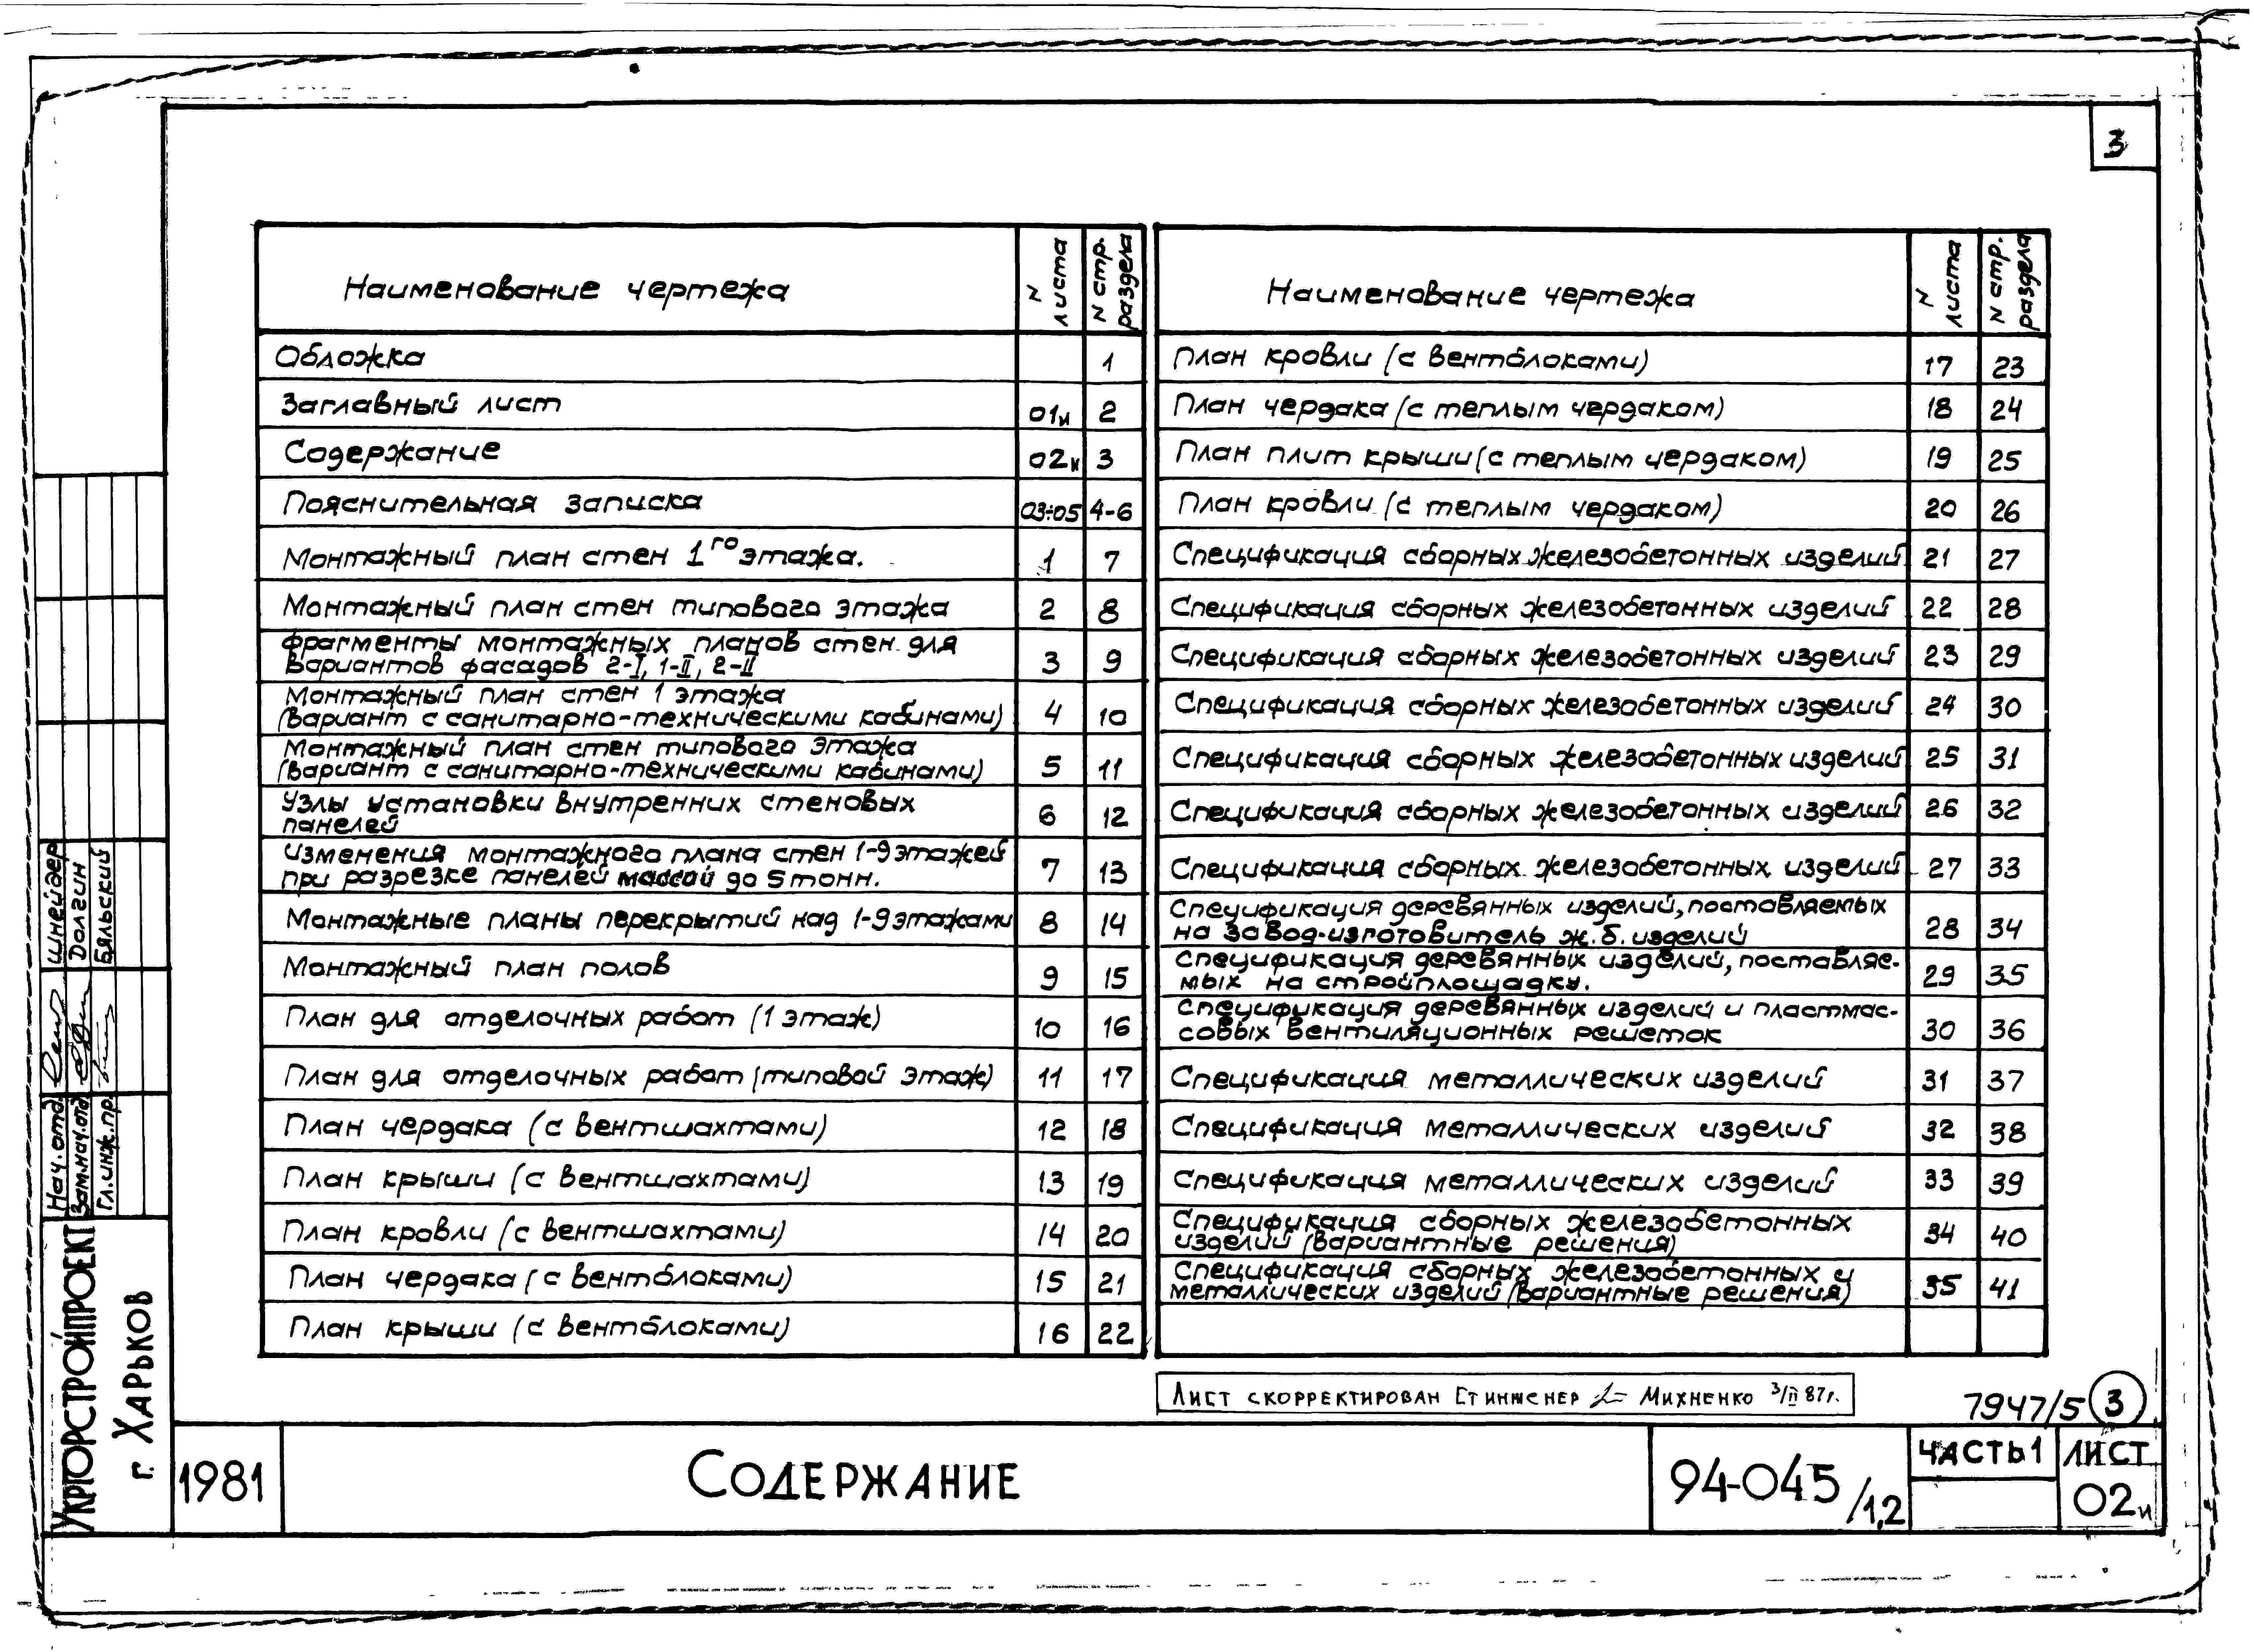 3
Наименование чертежа
N листа
N стр. раздела
Обложка 1
Заглавный лист 01и 2
Содержание 02и 3
Пояснительная записка 03÷05 4-6
Монтажный план стен 1го этажа. 1 7
Монтажный план стен типового этажа 2 8
Фрагменты монтажных планов стен для
вариантов фасадов 2-I, 1-II, 2-II 3 9
Монтажный план стен 1 этажа
(вариант с санитарно-техническими кабинами) 4 10
Монтажный план стен типового этажа
(вариант с санитарно-техническими кабинами) 5 11
Узлы установки внутренних стеновых
панелей 6 12
Изменения монтажного плана стен 1-9 этажей
при разрезке панелей массой до 5 тонн. 7 13
Монтажные планы перекрытий над 1-9 этажами 8 14
Монтажный план полов 9 15
План для отделочных работ (1 этаж) 10 16
План для отделочных работ (типовой этаж) 11 17
План чердака (с вентшахтами) 12 18
План крыши (с вентшахтами) 13 19
План кровли (с вентшахтами) 14 20
План чердака (с вентблоками) 15 21
План крыши (с вентблоками) 16 22
Наименование чертежа
N листа
N стр. раздела
План кровли (с вентблоками) 17 23
План чердака (с теплым чердаком) 18 24
План плит крыши (с теплым чердаком) 19 25
План кровли (с теплым чердаком) 20 26
Спецификация сборных железобетонных изделий 21 27
Спецификация сборных железобетонных изделий 22 28
Спецификация сборных железобетонных изделий 23 29
Спецификация сборных железобетонных изделий 24 30
Спецификация сборных железобетонных изделий 25 31
Спецификация сборных железобетонных изделий 26 32
Спецификация сборных железобетонных изделий 27 33
Спецификация деревянных изделий, поставляемых
на завод-изготовитель ж.б. изделий 28 34
Спецификация деревянных изделий, поставляе-
мых на стройплощадку. 29 35
Спецификация деревянных изделий и пластмас-
совых вентиляционных решеток 30 36
Спецификация металлических изделий 31 37
Спецификация металлических изделий 32 38
Спецификация металлических изделий 33 39
Спецификация сборных железобетонных
изделий (вариантные решения) 34 40
Спецификация сборных железобетонных и
металлических изделий (вариантные решения) 35 41
Лист скорректирован Ст инженер Михненко 3/II 87г.
7947/5 3
Нач. отд. Шнейдер
Зам.нач.отд. Долгин
Гл.инж.пр. Бяльский
УКРГОРСТРОЙПРОЕКТ
г. ХАРЬКОВ
1981
СОДЕРЖАНИЕ
94-045/1,2
ЧАСТЬ 1
ЛИСТ
02и